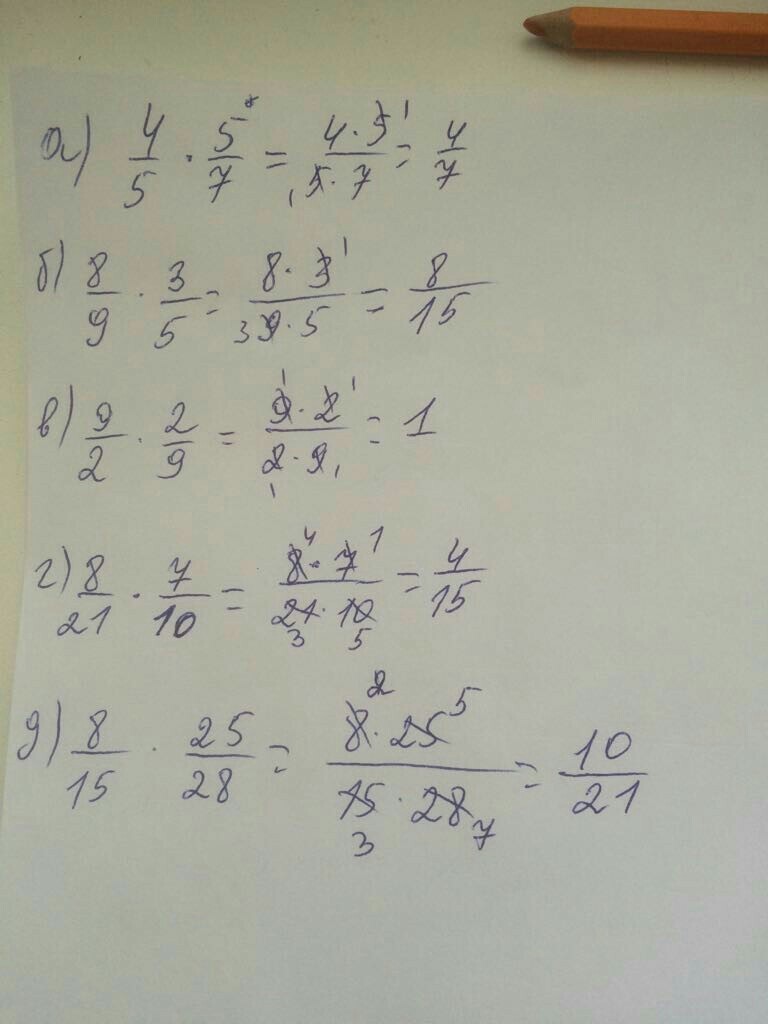 а) 4/5 · 5/7 = 4·5 1 / 1 5·7 = 4/7
б) 8/9 · 3/5 = 8·3 1 / 3 9·5 = 8/15
в) 9/2 · 2/9 = 1 9·2 1 / 2 1·9 1 = 1
г) 8/21 · 7/10 = 8 4·7 1 / 21 3·10 5 = 4/15
д) 8/15 · 25/28 = 8 2·25 5 / 15 3·28 7 = 10/21